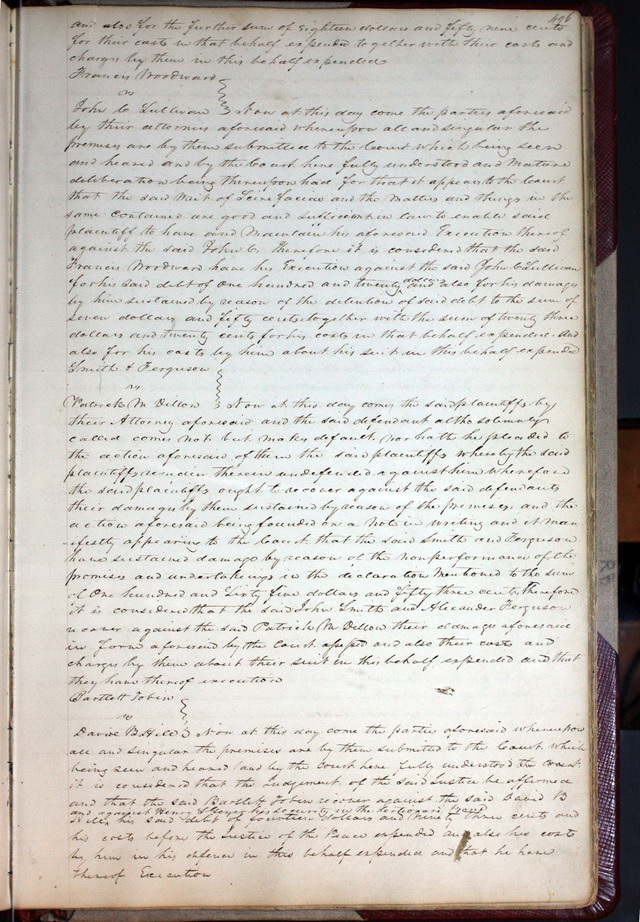 496
and also for the further sum of Eighteen dollars and fifty nine cents
for their costs in that behalf expended together with their costs and
charges by them in this behalf expended
Francis Woodward
vs
John C Sullivan Now at this day come the parties aforesaid
by their attornies aforesaid whereupon all and singular the
premises are by them submitted to the Court which being seen
and heard and by the Court here fully understood and mature
deliberation being thereupon had for that it appears to the Court
that the said Writ of Scire facias and the Matters and things in the
same contained are good and sufficient in law to enable said
plaintiff to have and maintain his aforesaid Execution thereof
against the said John C. Therefore it is considered that the said
Francis Woodward have his Execution against the said John C Sullivan
for his said debt of One hundred and twenty and also for his damages
by him sustained by reason of the detention of said debt to the sum of
seven dollars and fifty cents together with the sum of twenty three
dollars and twenty cents for his costs in that behalf expended and
also for his costs by him about his suit in this behalf expended
Smith & Ferguson
vs
Patrick M Dillon Now at this day comes the said plaintiffs by
their Attorney aforesaid and the said defendant altho solemnly
called comes not but makes default nor hath he pleaded to
the action aforesaid of them the said plaintiffs whereby the said
plaintiffs remain therein undefended against him wherefore
the said plaintiffs ought to recover against the said defendants
their damages by them sustained by reason of the premises and the
action aforesaid being founded on a Note in writing and it man
-ifestly appearing to the Court that the said Smith and Ferguson
have sustained damage by reason of the nonperformance of the
promises and undertakings in the declaration Mentioned to the sum
of One hundred and Sixty five dollars and fifty three cents, therefore
it is considered that the said John Smith and Alexander Ferguson
recover against the said Patrick M Dillon their damages aforesaid
in form aforesaid by the Court assessed and also their costs and
charges by them about their suit in this behalf expended and that
they have thereof execution
Bartlett Tobin
vs
David B. Hill Now at this day come the parties aforesaid whereupon
all and singular the premises are by them submitted to the Court which
being seen and heard and by the Court here fully understood
it is considered that the judgement of the said Justice be affirmed
and that the said Bartlett Tobin recover against the said David B
and against Henry his security in the Appeal Bond
Hill, his said debt of fourteen dollars and Ninety three cents and
his costs before the Justice of the Peace expended and also his costs
by him in his defence in this behalf expended and that he have
thereof Execution